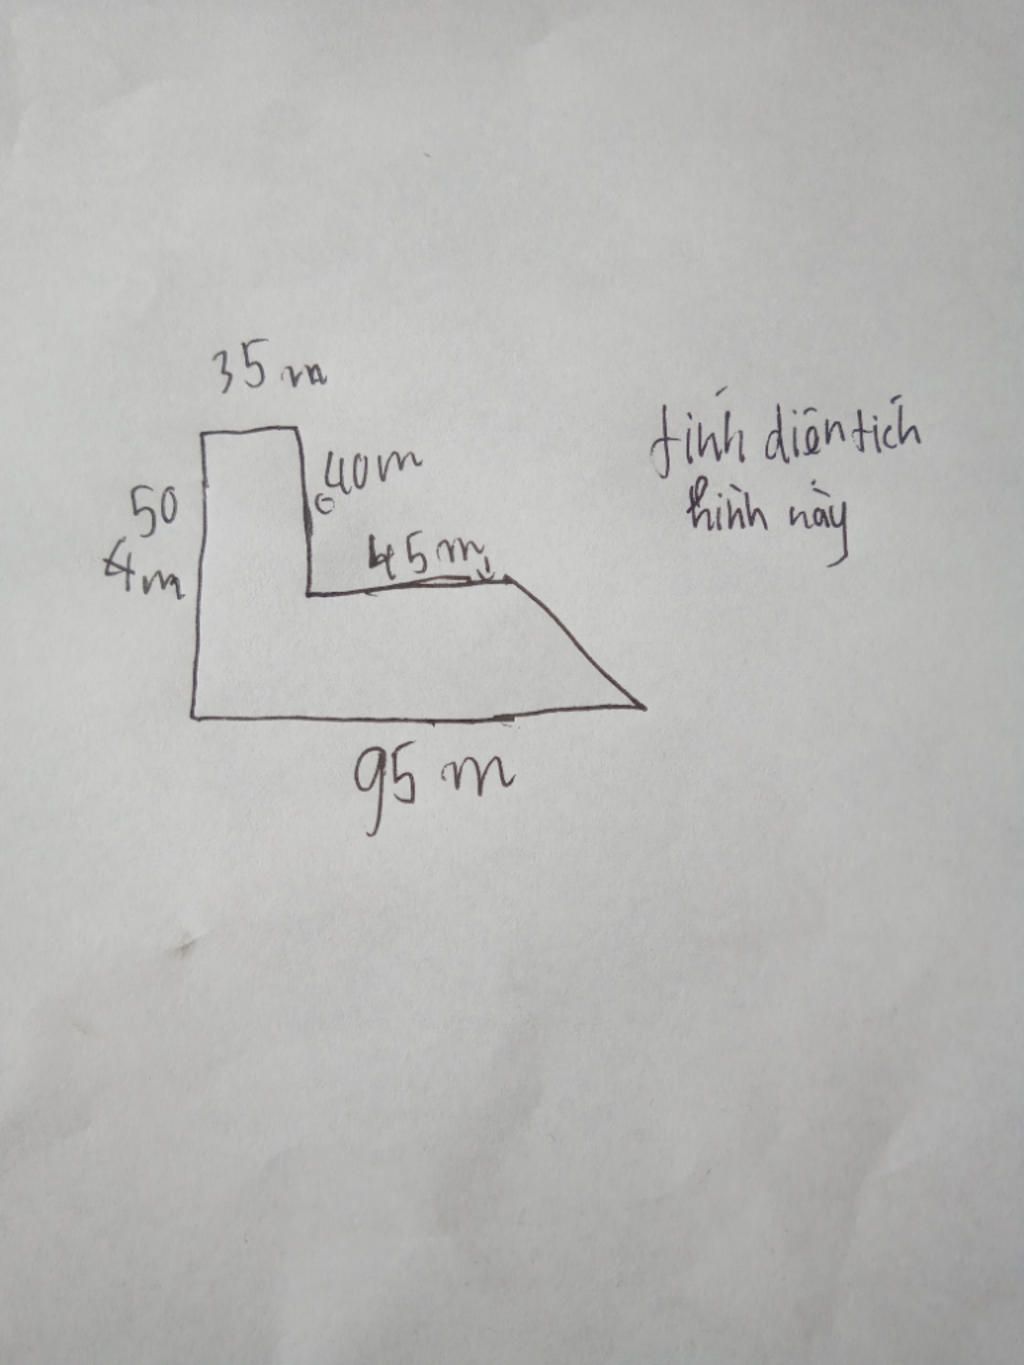 35 m
40m
50
4m
45m
95 m
tính diện tích
hình này